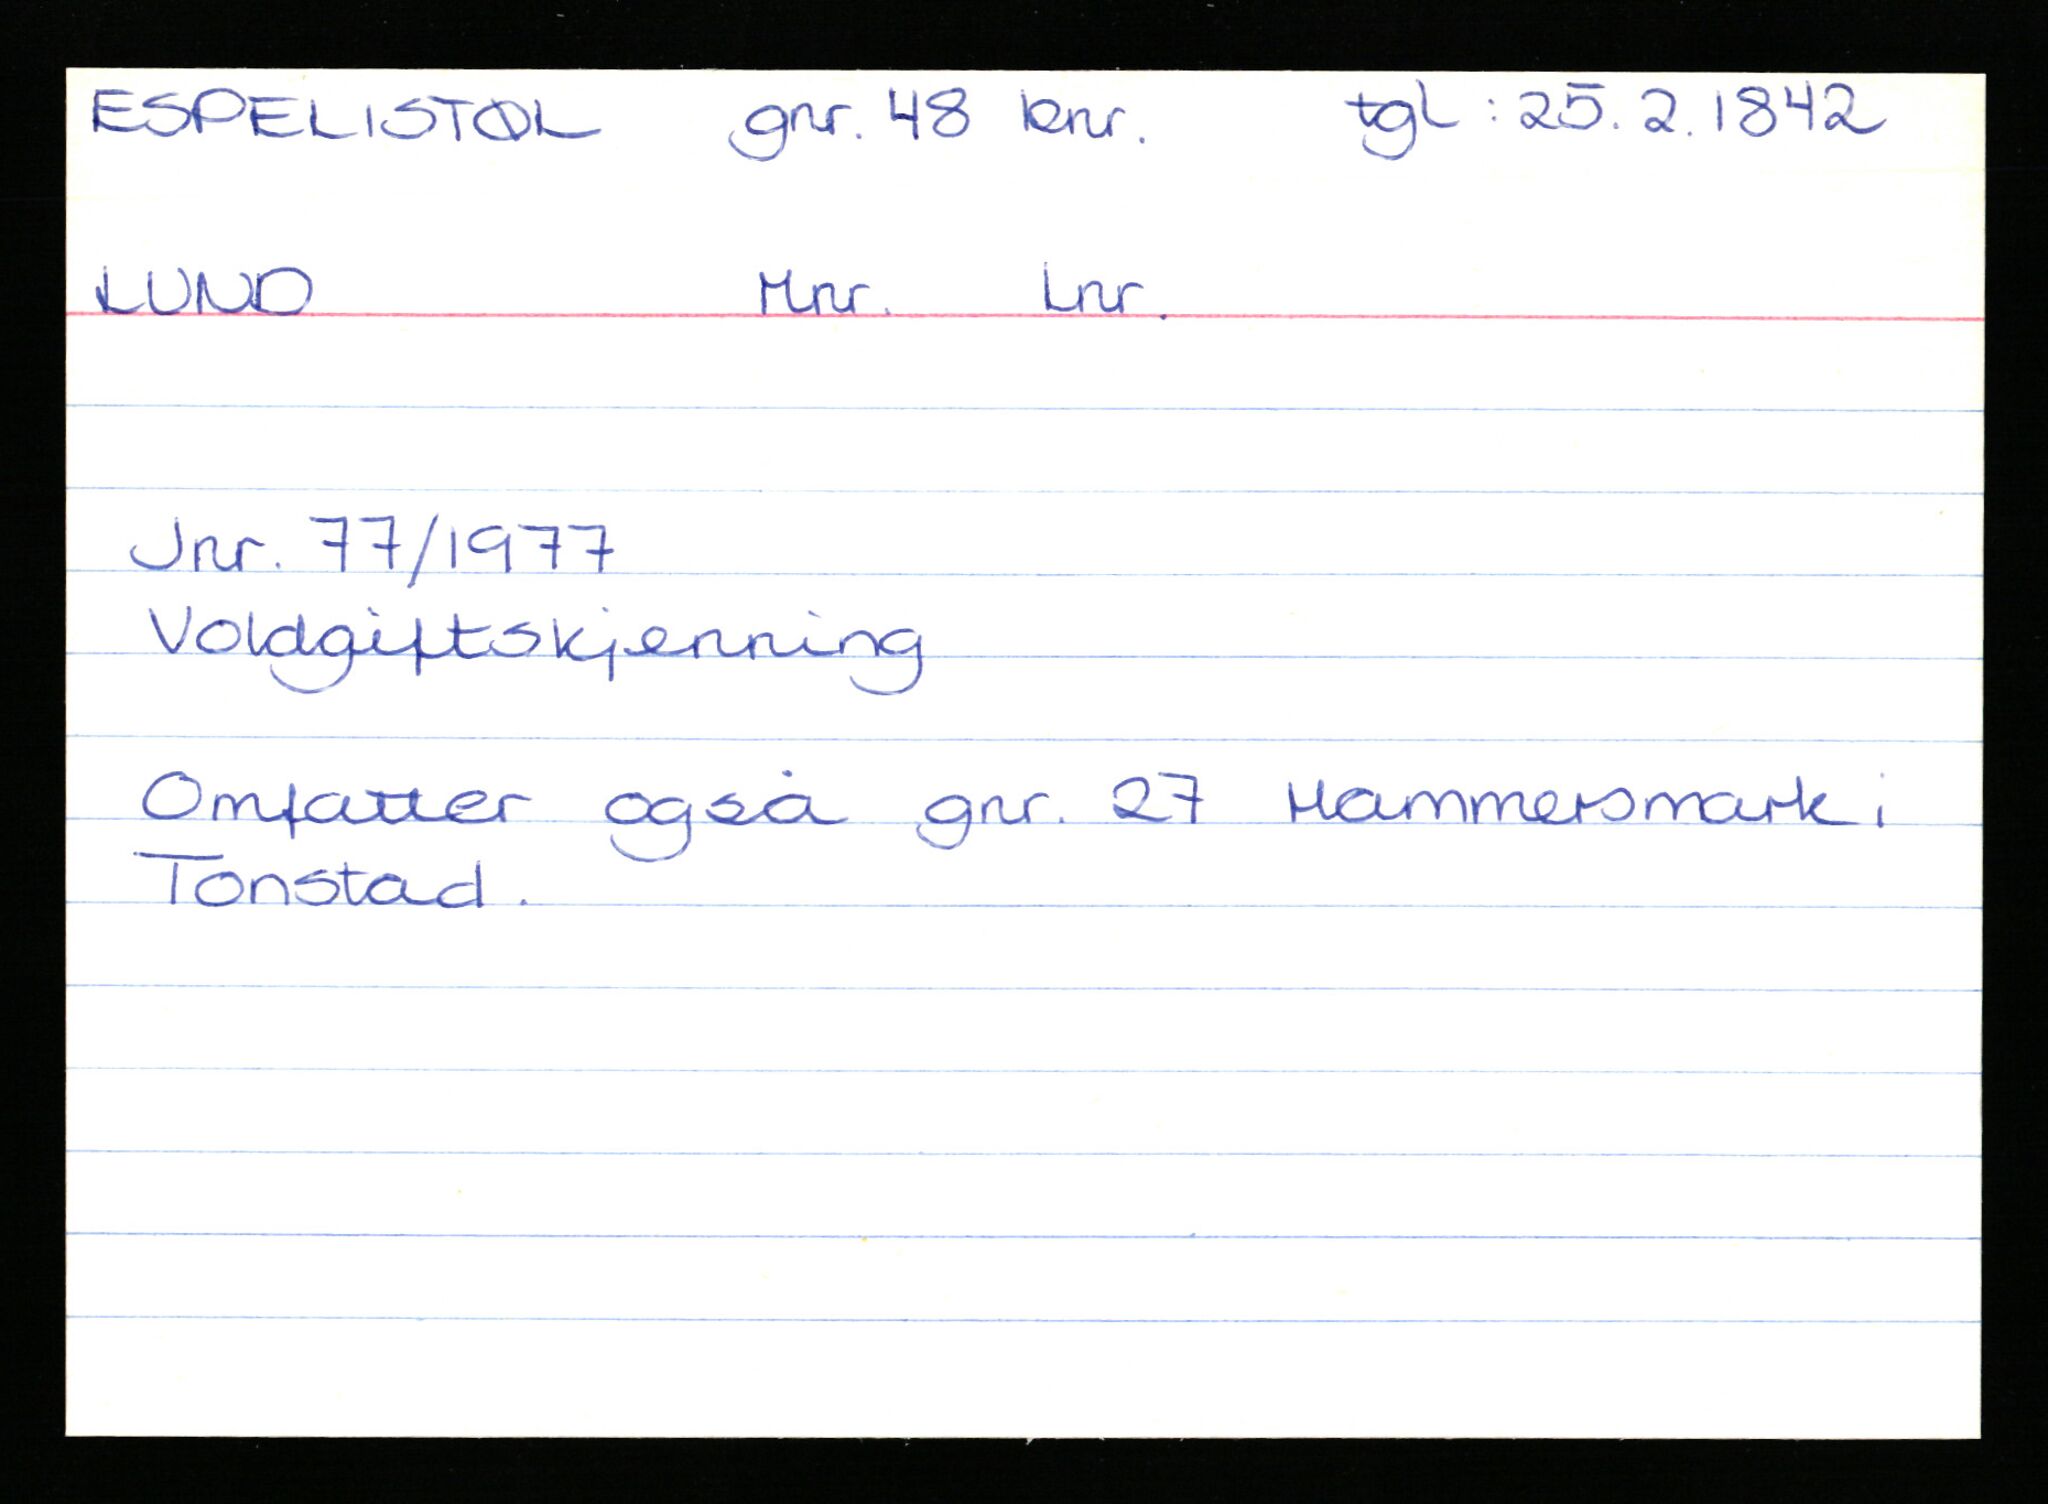 ESPELISTØL gnr. 48 bnr. tgl : 25. 2. 1842
LUND Mnr. Lnr.
Jnr. 77/1977
Voldgiftskjenning
Omfatter også gnr. 27 Hammersmark i
Tonstad.